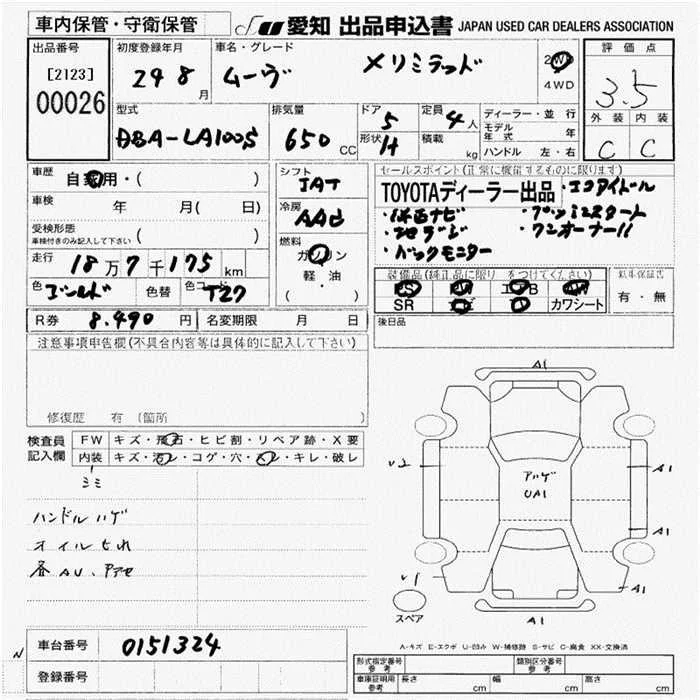 車内保管・守衛保管
JU 愛知 出品申込書 JAPAN USED CAR DEALERS ASSOCIATION
出品番号
[2123]
00026
初度登録年月
24 8 月
車名・グレード
ムーヴ Xリミテッド
2WD
4WD
評価点
3.5
外装 内装
C C
型式
DBA-LA100S
排気量
650 CC
ドア 5
形状 H
定員 4 人
積載 kg
ディーラー・並行
モデル年式 年
ハンドル 左・右
車歴 自家用・( )
車検 年 月( 日)
受検形態
車検付きのみ記入して下さい ( )
走行 18万7千175 km
色 ゴールド 色替 色コード T27
シフト
IAT
冷房
AAC
燃料
ガソリン
軽・油
( )
セールスポイント(正常に機能するものに限ります)
TOYOTAディーラー出品 ・エコアイドル
・社外ナビ ・プッシュスタート
・地デジ ・ワンオーナー!!
・バックモニター
装備品(純正品に限り○をつけてください)
PS PW エアB AW
SR ナビ カワシート
新車保証書
有・無
後日品
R券 8,490 円 名変期限 月 日
注意事項申告欄(不具合内容等は具体的に記入して下さい)
修復歴 有 (箇所
検査員記入欄
FW キズ・飛石・ヒビ割・リペア跡・X要
内装 キズ・汚レ・コゲ・穴・スレ・キレ・破レ
シミ
ハンドルハゲ
オイルもれ
各AU、
A1
V2
アハゲ
UA1
A1
A1
A1
V1
スペア
A1
A-キズ E-エクボ U-凹み W-補修跡 S-サビ C-腐食 XX-交換済
N
車台番号 0151324
登録番号
形式指定番号 参考
類別区分番号 参考
車庫証明用 参考 長さ cm 幅 cm 高さ cm